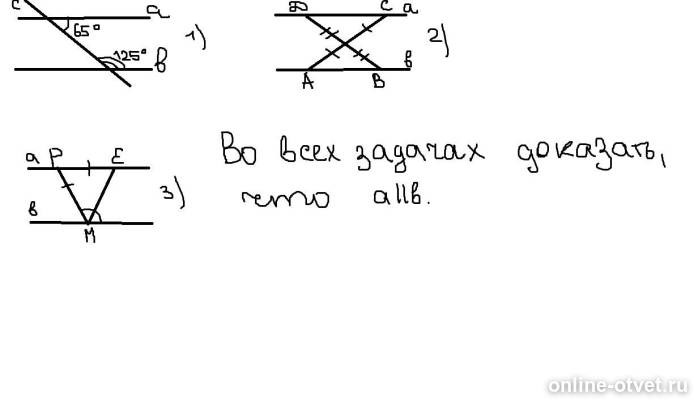 c a
65°
125° в
1)
D C a
2)
A B в
a P E
в
M
3)
Во всех задачах доказать,
что a||в.
online-otvet.ru